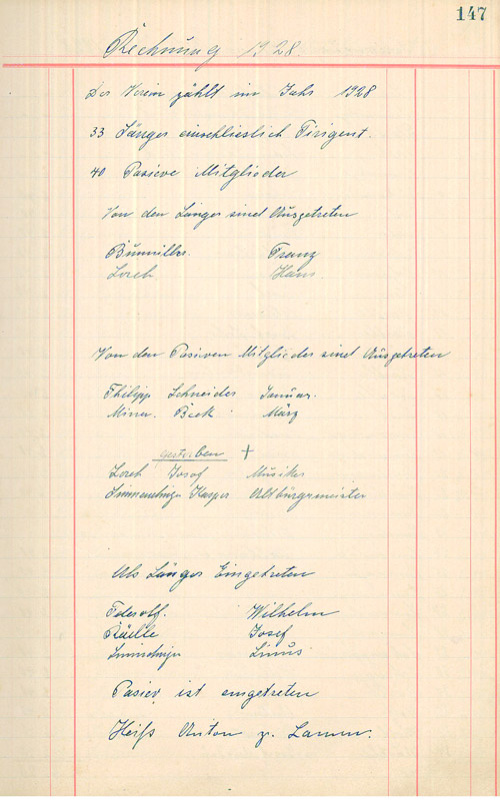 147
Rechnung 1928.
Der Verein zählt im Jahr 1928
33 Sänger einschlieslich Dirigent.
40 Pasieve Mitglieder
Von den Sänger sind Ausgetreten
Franz
Lorch Hans
Von den Pasiven Mitglieder sind Ausgetreten
Philipp Schneider Januar.
Minna. Beck März
gestorben +
Lorch Josef Musiker
Kasper Altbürgermeister
Als Sänger Eingetreten
Wilhelm
Josef
Linus
Pasiev ist eingetreten
Heiß Anton z. Lamm.